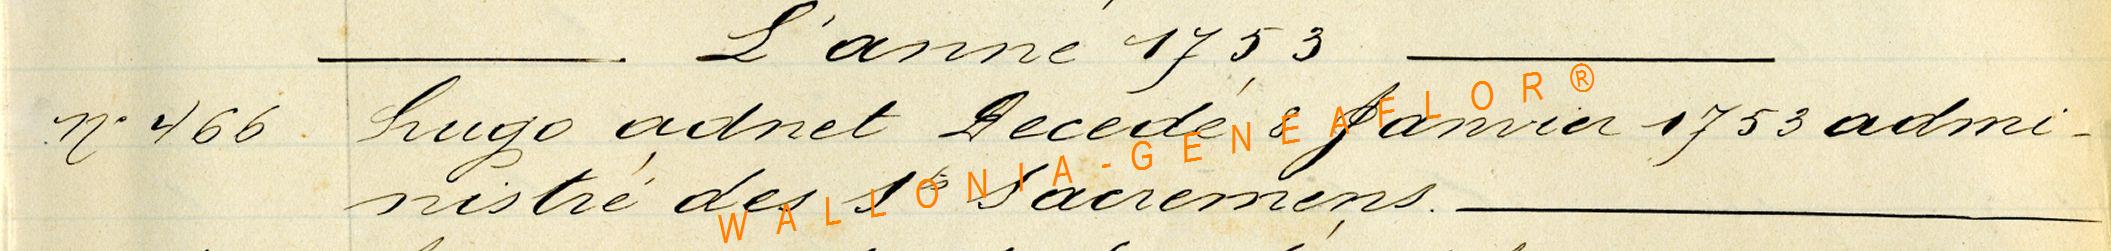 L'anné 1753
N° 466 hugo adnet Decedé 8 Janvier 1753 admi-
nistré des Sts Sacremens.
WALLONIA-GENEAFLOR®